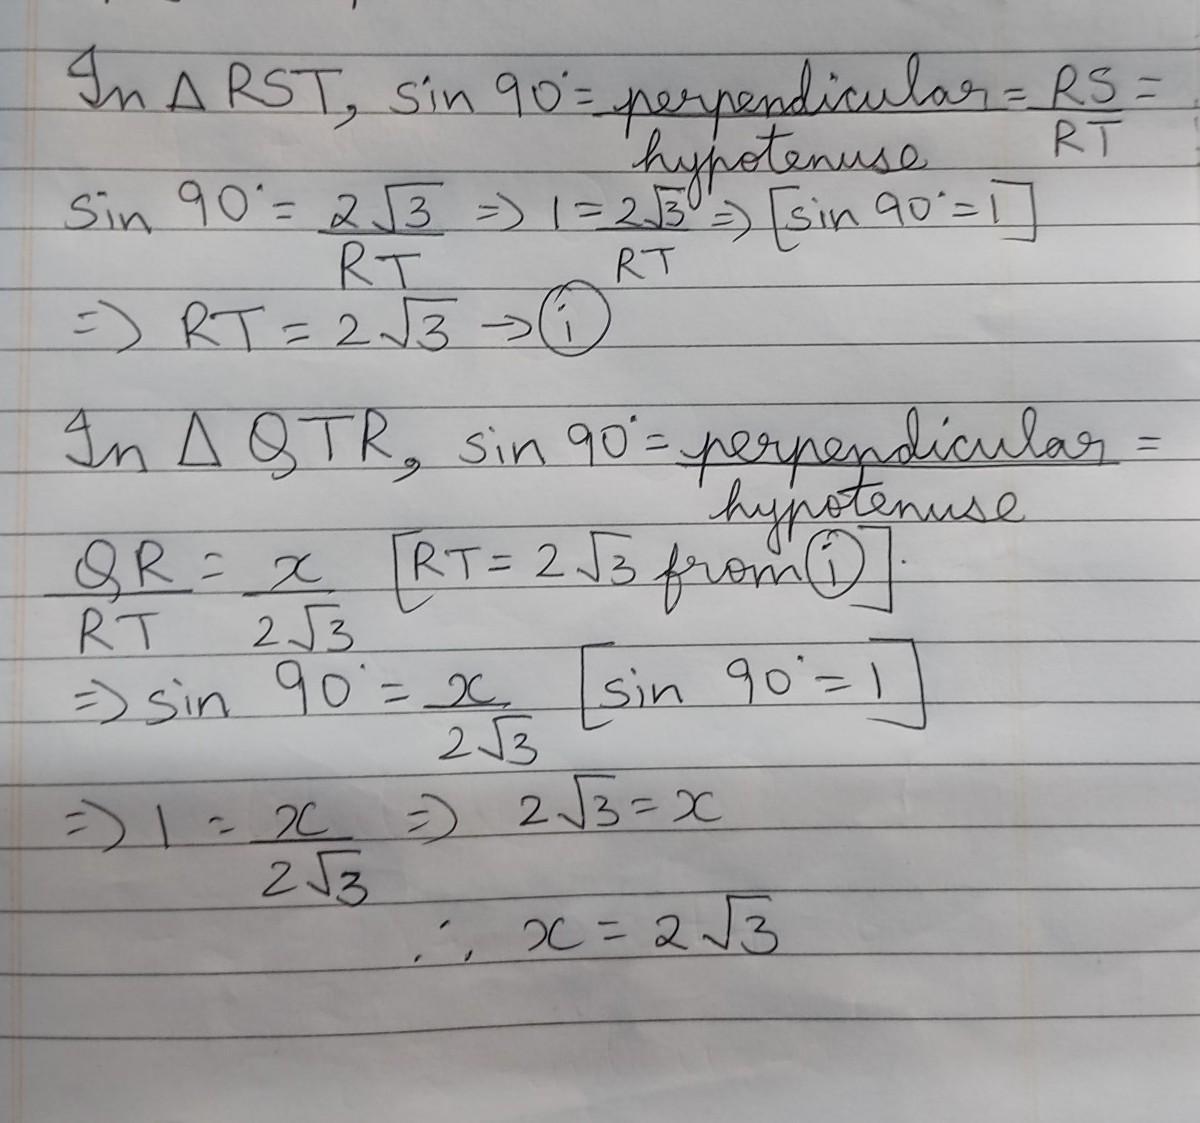 In Δ RST, sin 90° = perpendicular/hypotenuse = RS/RT =
sin 90° = 2√3/RT ⇒ 1 = 2√3/RT ⇒ [sin 90° = 1]
⇒ RT = 2√3 → (i)
In Δ QTR, sin 90° = perpendicular/hypotenuse =
QR/RT = x/2√3 [RT = 2√3 from (i)].
⇒ sin 90° = x/2√3 [sin 90° = 1]
⇒ 1 = x/2√3 ⇒ 2√3 = x
∴ x = 2√3